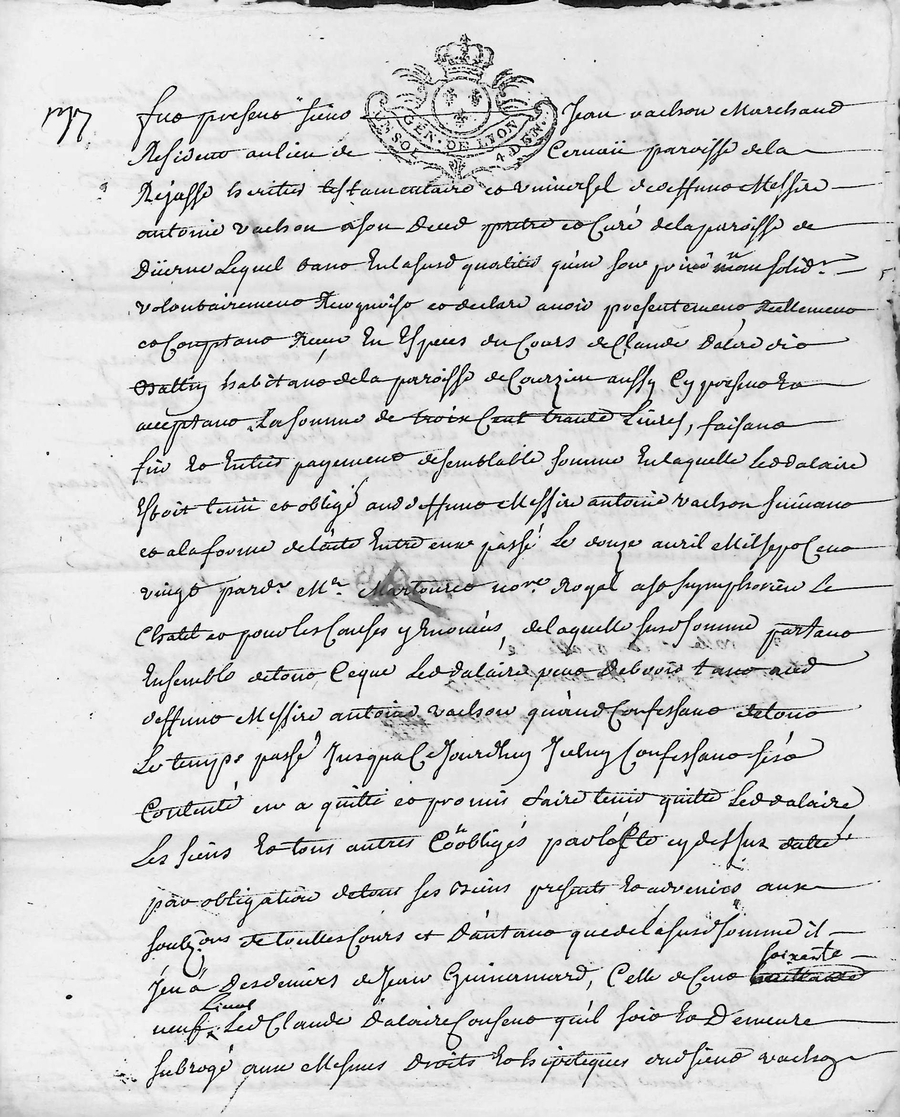 fut present sieur Jean vachon Marchand
GEN · DE LYON
UN SOL 4 DENS
Resident au lieu de paroisse dela
Rejasse heritier testamentaire et vniversel dedeffunt Messire
antoine vachon son pretre et Curé dela paroisse de
Lequel dans Enlasusd qualité qu'en son
volontairement et declare avoir presentement Reellement
et Comptant Receu En Especes du Cours de Claude dalaire dit
habitant dela paroisse de Courzieu aussy Cy present Et
acceptant La somme de trois Cent trante Livres, faisant
fin Et Entier payement desemblable somme Enlaquelle Led dalaire
Estoit tenu et obligé aud deffunt Messire antoine vachon suivant
et ala forme delacte Entre eux passé Le douze avril Mil sept Cent
vingt pardt Me no.re Royal a st Symphorien Le
Chatel et pour les Causes y Enoncés, delaquelle susd somme partant
Ensemble detout Ceque Led dalaire peut debvoir tant aud
deffunt Messire antoine vachon quaud Confessant detout
Le temps passé Jusqua CeJourdhuy Jceluy Confessant sesd
Contenté en a quitté et promis faire tenir quitte Led dalaire
Les siens Et tous autres Cöobligés parlacte cy dessus datté
par obligation detous ses biens presents Et advenirs aux
de touttes Cours et Dautant quedelasusd somme il
soixente
Jen a Desdeniers de Jean Guinamard, Celle de Cent
Livres
neuf Led Claude dalaire Consent quil soit Et Demeure
subrogé aux Mesmes Droits Et hipoteques dud sieur vachon